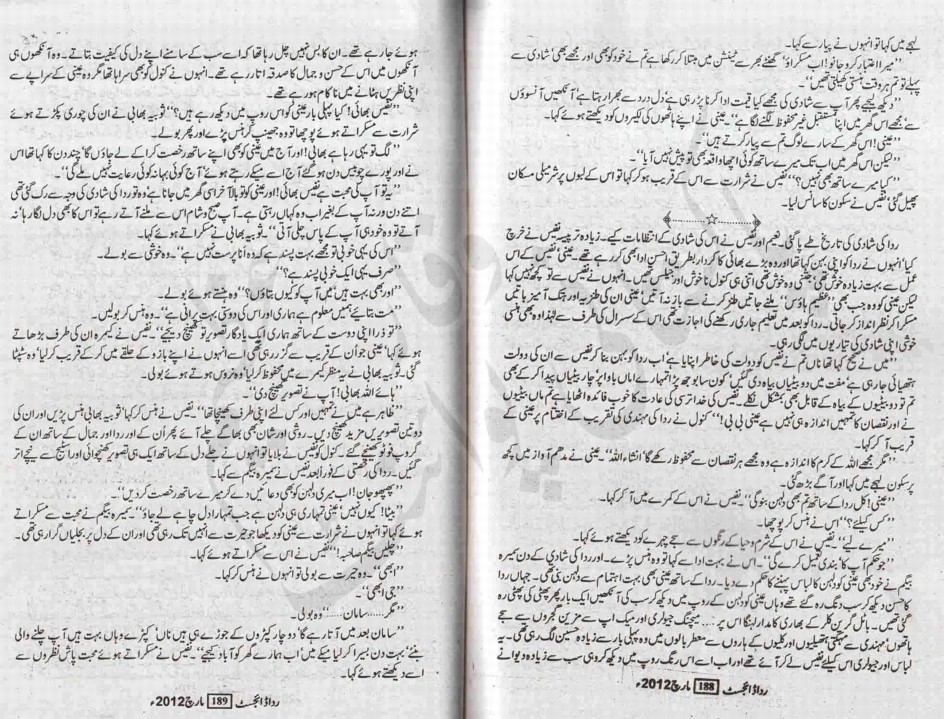 لہجے میں کہا تو انہوں نے پیار سے کہا۔
”میرا اعتبار کرو جانو! اب مسکراؤ‘ گھنٹے بھر سے ٹینشن میں مبتلا کر رکھا ہے تم نے خود کو بھی اور مجھے بھی‘ شادی سے
پہلے تو تم ہر وقت ہنستی کھیلتی تھیں“۔
”دیکھ لیجیے پھر آپ سے شادی کی مجھے کیا قیمت ادا کرنا پڑ رہی ہے‘ دل درد سے بھرا رہتا ہے‘ آنکھیں آنسوؤں
سے‘ مجھے اس گھر میں اپنا مستقبل غیر محفوظ لگنے لگا ہے“۔ عینی نے اپنے ہاتھوں کی لکیروں کو دیکھتے ہوئے کہا۔
”عینی! اس گھر کے سارے لوگ تم سے پیار کرتے ہیں“۔
”لیکن اس گھر میں اب تک میرے ساتھ کوئی اچھا واقعہ بھی تو پیش نہیں آیا“۔
”کیا میرے ساتھ بھی نہیں؟“ نفیس نے شرارت سے اس کے قریب ہو کر کہا تو اس کے لبوں پر شرمیلی مسکان
پھیل گئی‘ نفیس نے سکون کا سانس لیا۔
☆
ردا کی شادی کی تاریخ طے پا گئی۔ نعیم اور نفیس نے اس کی شادی کے انتظامات کیے۔ زیادہ تر پیسہ نفیس نے خرچ
کیا‘ انہوں نے ردا کو اپنی بہن کہا تھا اور وہ بڑے بھائی کا کردار بطریق احسن ادا بھی کر رہے تھے۔ عینی‘ نفیس کے اس
عمل سے بہت زیادہ خوش تھی‘ جتنی وہ خوش تھی اتنی ہی کنول ناخوش اور جیلس تھیں۔ انہوں نے نفیس سے تو کچھ نہیں کہا
لیکن عینی کو وہ جب بھی ”عظیم ہاؤس“ ملنے جاتیں طنز کرنے سے باز نہ آتیں‘ عینی ان کی طنزیہ اور ہتک آمیز باتیں
مسکرا کر نظر انداز کر جاتی۔ ردا کو بعد میں تعلیم جاری رکھنے کی اجازت تھی اس کے سسرال کی طرف سے لہٰذا وہ بھی ہنسی
خوشی اپنی شادی کی تیاریوں میں لگی رہی۔
”میں نے صحیح کہا تھا ناں تم نے نفیس کو دولت کی خاطر اپنایا ہے‘ اب ردا کو بہن بنا کر نفیس سے ان کی دولت
ہتھیائی جا رہی ہے‘ مفت میں دو بیٹیاں بیاہ دی گئیں‘ کون سا بوجھ پڑا تمہارے اماں باوا پر چار بیٹیاں پیدا کر کے بھی
تم تو دو بیٹیوں کے بیاہ کے قابل بھی بمشکل نکلے۔ نفیس کی خدا ترسی کی عادت کا خوب فائدہ اٹھایا ہے تم ماں بیٹیوں
نے اور نقصان کا تمہیں اندازہ ہی نہیں ہے عینی بی بی!“ کنول نے ردا کی مہندی کی تقریب کے اختتام پر عینی کے
قریب آ کر کہا۔
”مگر مجھے اللہ کے کرم کا اندازہ ہے وہ مجھے ہر نقصان سے محفوظ رکھے گا‘ انشاء اللہ“۔ عینی نے مدھم آواز میں کچھ
پرسکون لہجے میں کہا اور آگے بڑھ گئی۔
”عینی! کل ردا کے ساتھ تم بھی دلہن بنو گی“۔ نفیس نے اس کے کمرے میں آ کر کہا۔
”کس کیلئے؟“ اس نے ہنس کر پوچھا۔
”میرے لیے“۔ نفیس نے اس کے شرم و حیا کے رنگوں سے سجے چہرے کو دیکھتے ہوئے کہا۔
”جو حکم آپ کا‘ بندی تعمیل کرے گی“۔ اس نے بہت ادا سے کہا تو وہ ہنس پڑے۔ اور ردا کی شادی کے دن سمیرہ
بیگم نے خود بھی عینی کو دلہن کا لباس پہننے کا حکم دے دیا۔ ردا کے ساتھ عینی بھی بہت اہتمام سے دلہن بنی تھی۔ جہاں ردا
کا حسن دیکھ کر سب دنگ رہ گئے تھے وہاں عینی کو دلہن کے روپ میں دیکھ کر سب کی آنکھیں ایک بار پھر پھٹی کی پھٹی رہ
گئی تھیں۔ باٹل گرین کلر کے بھاری کا مدار لہنگا اس پر..... میچنگ جیولری اور میک اپ سے مزین گجروں سے سجے
ہاتھوں‘ مہندی سے مہکتی ہتھیلیوں اور کلیوں کے ہاروں سے معطر بالوں میں وہ پہلی بار سے زیادہ حسین لگ رہی تھی۔ یہ
لباس اور جیولری اس کیلئے نفیس لے کر آئے تھے اور اب اسے اس رنگ روپ میں دیکھ کر وہی سب سے زیادہ دیوانے
ردا ڈائجسٹ 188 مارچ 2012ء
ہوئے جا رہے تھے۔ ان کا بس نہیں چل رہا تھا کہ اسے سب کے سامنے اپنے دل کی کیفیت بتاتے۔ وہ آنکھوں ہی
آنکھوں میں اس کے حسن و جمال کا صدقہ اتار رہے تھے۔ انہوں نے کنول کو بھی سراہا تھا مگر وہ عینی کے سراپے سے
اپنی نظریں ہٹانے میں ناکام ہو رہے تھے۔
”نفیس بھائی! کیا پہلی بار عینی کو اس روپ میں دیکھ رہے ہیں؟“ ثوبیہ بھابی نے ان کی چوری پکڑتے ہوئے
شرارت سے مسکراتے ہوئے پوچھا تو وہ جھینپ کر ہنس پڑے اور پھر بولے۔
”لگ تو یہی رہا ہے بھابی! اور آج میں عینی کو بھی اپنے ساتھ رخصت کرا کے لے جاؤں گا‘ چند دن کا کہا تھا اس
نے اور پورے چوبیس دن ہو گئے آج اسے میکے رہتے ہوئے‘ آج کوئی بہانہ کوئی رعایت نہیں ملے گی“۔
”یہ تو آپ کی محبت ہے نفیس بھائی! اور عینی کو تو بالآخر اسی گھر میں جانا ہے‘ وہ تو ردا کی شادی کی وجہ سے رک گئی تھی
اتنے دن ورنہ آپ کے بغیر اب وہ کہاں رہتی ہے۔ آپ صبح و شام اس سے ملنے آتے رہے تو اس کا بھی دل لگا رہا‘ نہ
آتے تو وہ خود ہی آپ کے پاس چلی آتی“۔ ثوبیہ بھابی نے مسکراتے ہوئے کہا۔
”اس کی یہی خوبی تو مجھے بہت پسند ہے کہ وہ انا پرست نہیں ہے“۔ وہ خوشی سے بولے۔
”صرف یہی ایک خوبی پسند ہے؟“
”اور بھی بہت ہیں‘ میں آپ کو کیوں بتاؤں؟“ وہ ہنستے ہوئے بولے۔
”مت بتائیے‘ ہمیں معلوم ہے ہماری اور اس کی دوستی بہت پرانی ہے“۔ وہ ہنس کر بولیں۔
”تو ذرا اپنی دوست کے ساتھ ہماری ایک یادگار تصویر تو کھینچ دیجیے“۔ نفیس نے کیمرہ ان کی طرف بڑھاتے
ہوئے کہا‘ عینی جو ان کے قریب سے گزر رہی تھی اسے انہوں نے اپنے بازو کے حلقے میں کر کے قریب کر لیا‘ وہ سٹپٹا
گئی۔ ثوبیہ بھابی نے یہ منظر کیمرے میں محفوظ کر لیا‘ وہ نروس ہوتے ہوئے بولی۔
”ہائے اللہ بھابی! آپ نے تصویر کھینچ دی“۔
”ظاہر ہے میں نے تمہیں اور کس لئے اپنی طرف کھینچا تھا“۔ نفیس نے ہنس کر کہا‘ ثوبیہ بھابی ہنس پڑیں اور ان کی
دو تین تصویریں مزید کھینچ دیں۔ روشی اور شان بھی بھاگے چلے آئے پھر ان کے اور ردا اور جمال کے ساتھ ان کے
گروپ فوٹو کھینچے گئے۔ کنول کو نفیس نے بلایا تو انہوں نے جلے دل کے ساتھ ایک ہی تصویر کھنچوائی اور اسٹیج سے نیچے اتر
گئیں۔ ردا کی رخصتی کے فوراً بعد نفیس نے سمیرہ بیگم سے کہا۔
”پھپھو جان! اب میری دلہن کو بھی دعائیں دے کر میرے ساتھ رخصت کر دیں“۔
”بیٹا! کیوں نہیں‘ عینی تمہاری ہی دلہن ہے جب تمہارا دل چاہے لے جاؤ“۔ سمیرہ بیگم نے محبت سے مسکراتے
ہوئے کہا تو انہوں نے شرارت سے عینی کو دیکھا جو حیرت سے انہیں تک رہی تھی اور ان کے دل پر بجلیاں گرا رہی تھی۔
”چلیں بیگم صاحبہ!“ نفیس نے اس سے مسکراتے ہوئے کہا۔
”ابھی“۔ وہ حیرت سے بولی تو انہوں نے ہنس کر کہا۔
”جی ابھی“۔
”مگر..... سامان.....“ وہ بولی۔
”سامان بعد میں آتا رہے گا‘ دو چار کپڑوں کے جوڑے ہی ہیں ناں‘ کپڑے وہاں بہت ہیں آپ چلنے والی
بنیے‘ بہت دن بسیرا کر لیا میکے میں‘ اب ہمارے گھر کو آباد کیجیے“۔ نفیس نے مسکراتے ہوئے محبت پاش نظروں سے
اسے دیکھتے ہوئے کہا۔
ردا ڈائجسٹ 189 مارچ 2012ء